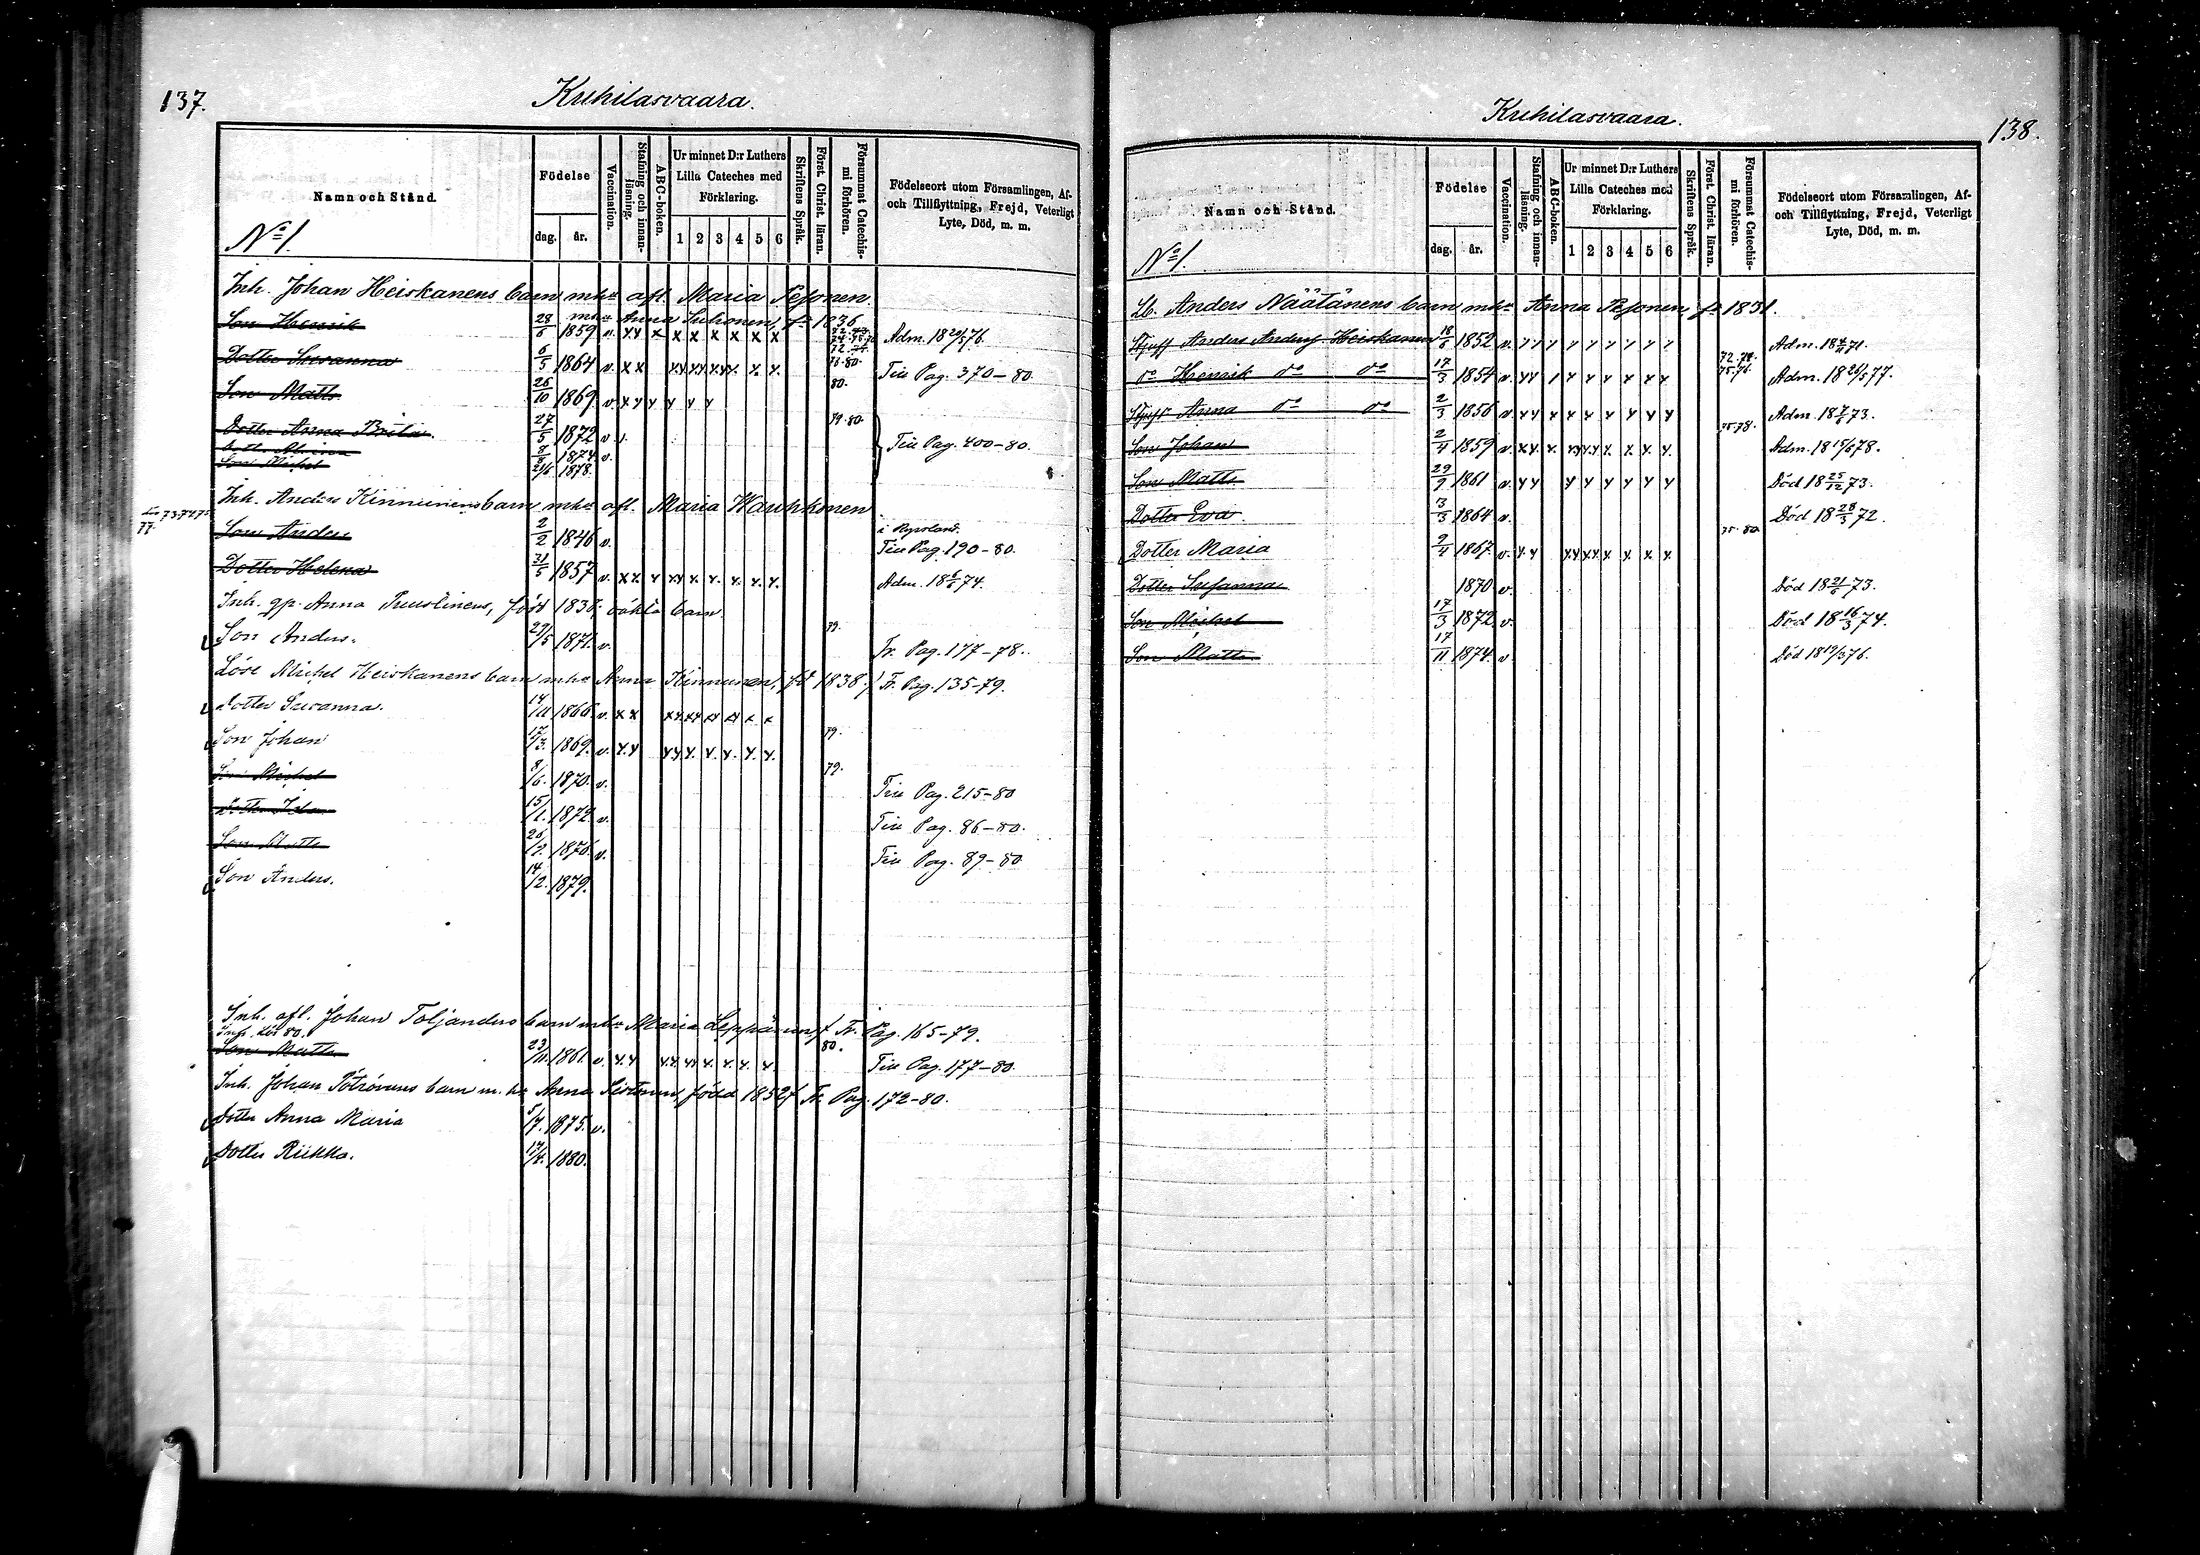 137.
Kuhilasvaara.
Namn och Stånd.
Födelse
dag. år.
Vaccination.
Stafning och innanläsning.
ABC-boken.
Ur minnet D:r Luthers Lilla Cateches med Förklaring.
1 2 3 4 5 6
Skriftens Språk.
Först. Christ. läran.
Försummat Catechismi förhören.
Födelseort utom Församlingen, Af- och Tillflyttning, Frejd, Veterligt Lyte, Död, m. m.
No 1.
Inh. Johan Heiskanens barn m. hu afl. Maria Pesonen.
m. hu Anna Suhonen, fd 1836
Son Henrik 28/6 1859 v. Adm. 18 20/5 76.
Dotter Susanna 6/5 1864 v. 76-80. Till Pag. 370-80.
Son Matts 26/10 1869 v. 80.
Dotter Anna Brita. 27/5 1872 v. 79.80. Till Pag. 400-80.
1874 v.
Son Michel 1878.
Inh. Anders Kinnunens barn m hu afl. Maria Wauhkonen
Son Anders 2/2 1846 v. i Ryssland. Till Pag. 190-80.
Dotter Helena 21/5 1857 v. Adm. 18 6/6 74.
Inh. gp. Anna Puustinens, född 183 oäkta barn
Son Anders. 29/5 1871. v. 79. Fr. Pag. 177-78.
Löse Michel Heiskanens barn m hu Anna Kinnunen, fd 1838. Fr. Pag. 135-79.
Dotter Susanna. 14/11 1866. v.
Son Johan 1869. v. 79.
Son Michel 8/6. 1870. v. 79. Till Pag. 215-80
Dotter Ida 15/1. 1872. v. Till Pag. 86-80.
Son Matts 26/2. 1876. v. Till Pag. 89-80
Son Anders. 14/2. 1879.
Inh. afl. Johan Toljanders barn m hu Maria Leppänen, Fr. Pag. 165-79.
Son Matts 23/11. 1861. v. 80. Till Pag. 177-80.
Inh. Johan Pötrönens barn m. hu Anna född 1852 Fr. Pag. 172-80.
Dotter Anna Maria 5/7. 1875. v.
Dotter Riikka. 1880.
138.
Kuhilasvaara.
Namn och Stånd.
Födelse
dag. år.
Vaccination.
Stafning och innanläsning.
ABC-boken.
Ur minnet D:r Luthers Lilla Cateches med Förklaring.
1 2 3 4 5 6
Skriftens Språk.
Först. Christ. läran.
Försummat Catechismi förhören.
Födelseort utom Församlingen, Af- och Tillflyttning, Frejd, Veterligt Lyte, Död, m. m.
No 1.
Lb. Anders Näätänens barn m hu Anna Pesonen, fd 1831.
Styff Anders Andersf. Heiskanen 18/6 1852 v. Adm. 71.
do Henrik do do 17/3 1854 v. 75.76. Adm. 18 26/5 77.
Styff Anna do do 2/3 1856 v. Adm. 73.
Son Johan 2/4 1859 v. 75-78. Adm. 18 15/6 78.
Son Matts 29/9 1861 v. Död 18 25/12 73.
Dotter Eva 3/3 1864 v. Död 18 28/3 72.
Dotter Maria 9/4 1867. v. 75-80
Dotter Susanna 1870 v. Död 18 21/5 73.
Son Michel 17/3 1872. v. Död 18 16/3 74.
Son Matts 17/11 1874. v. Död 18 19/3 76.